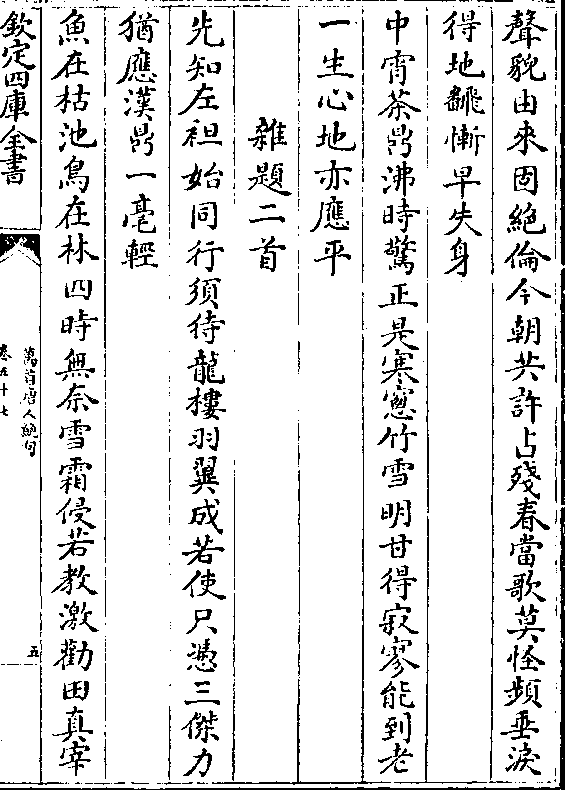 聲貌由來固絕倫今朝共許占殘春當歌莫怪頻垂淚
得地飜慚早失身
中宵茶鼎沸時驚正是寒窻竹雪明甘得寂寥能到老
一生心地亦應平
雜題二首
先知左袒始同行須待龍樓羽翼成若使只憑三傑力
猶應漢鼎一毫輕
魚在枯池鳥在林四時無奈雪霜侵若教激勸田真宰
欽定四庫全書
萬首唐人絕句
卷五十七
五